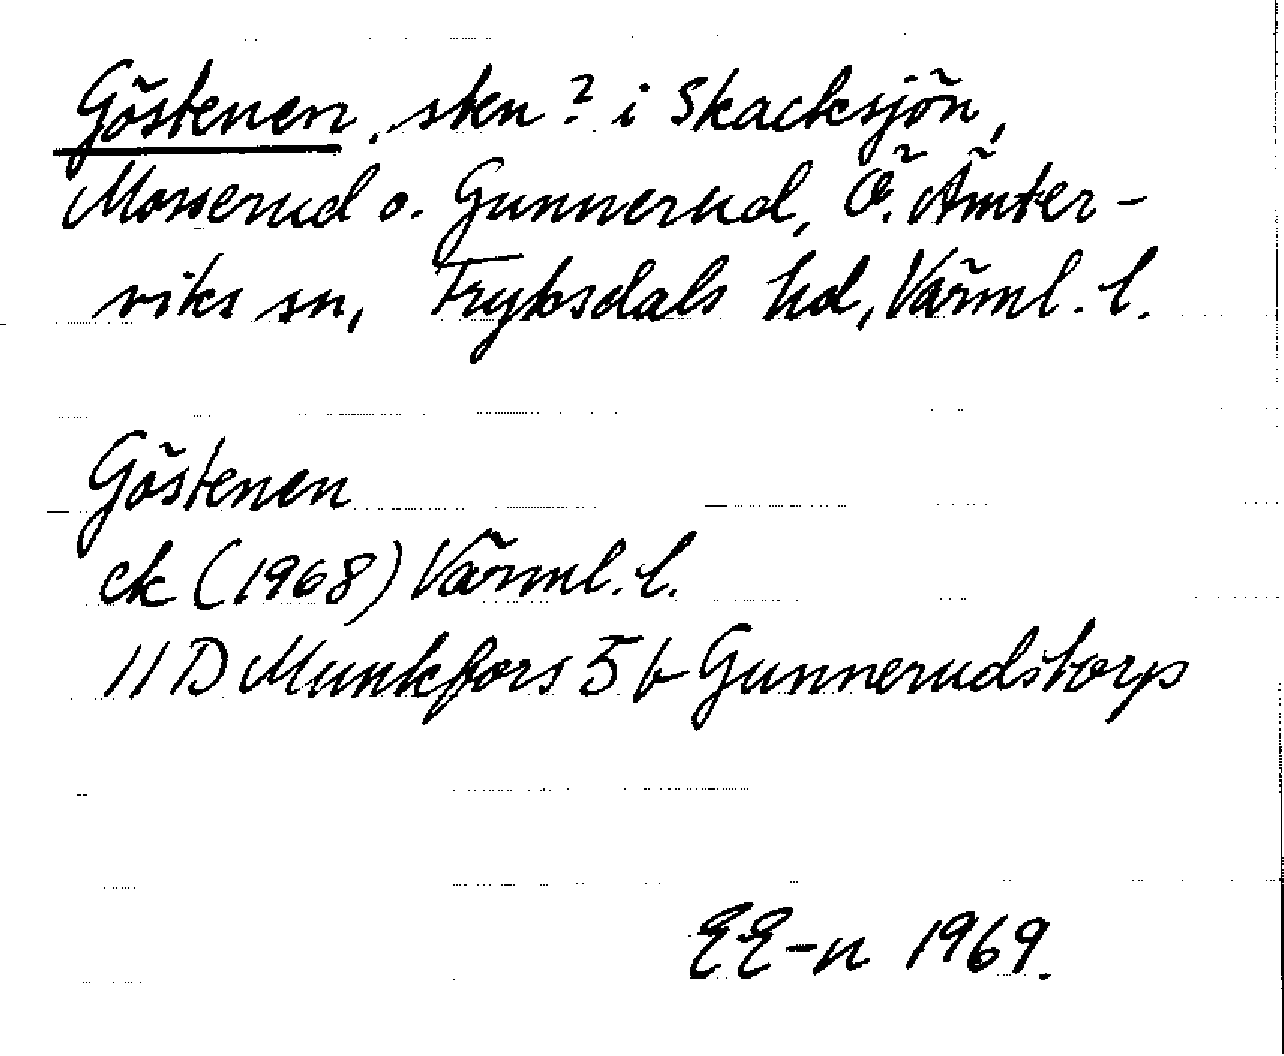 Göstenen, sken? i Skacksjön,
Mosserud o. Gunnerud, Ö. Ämter-
viks sn, Fryksdals hd, Värml. l.
Göstenen
ek (1968) Värml. l.
11 D Munkfors 5 b Gunnerudstorp
EE-n 1969.